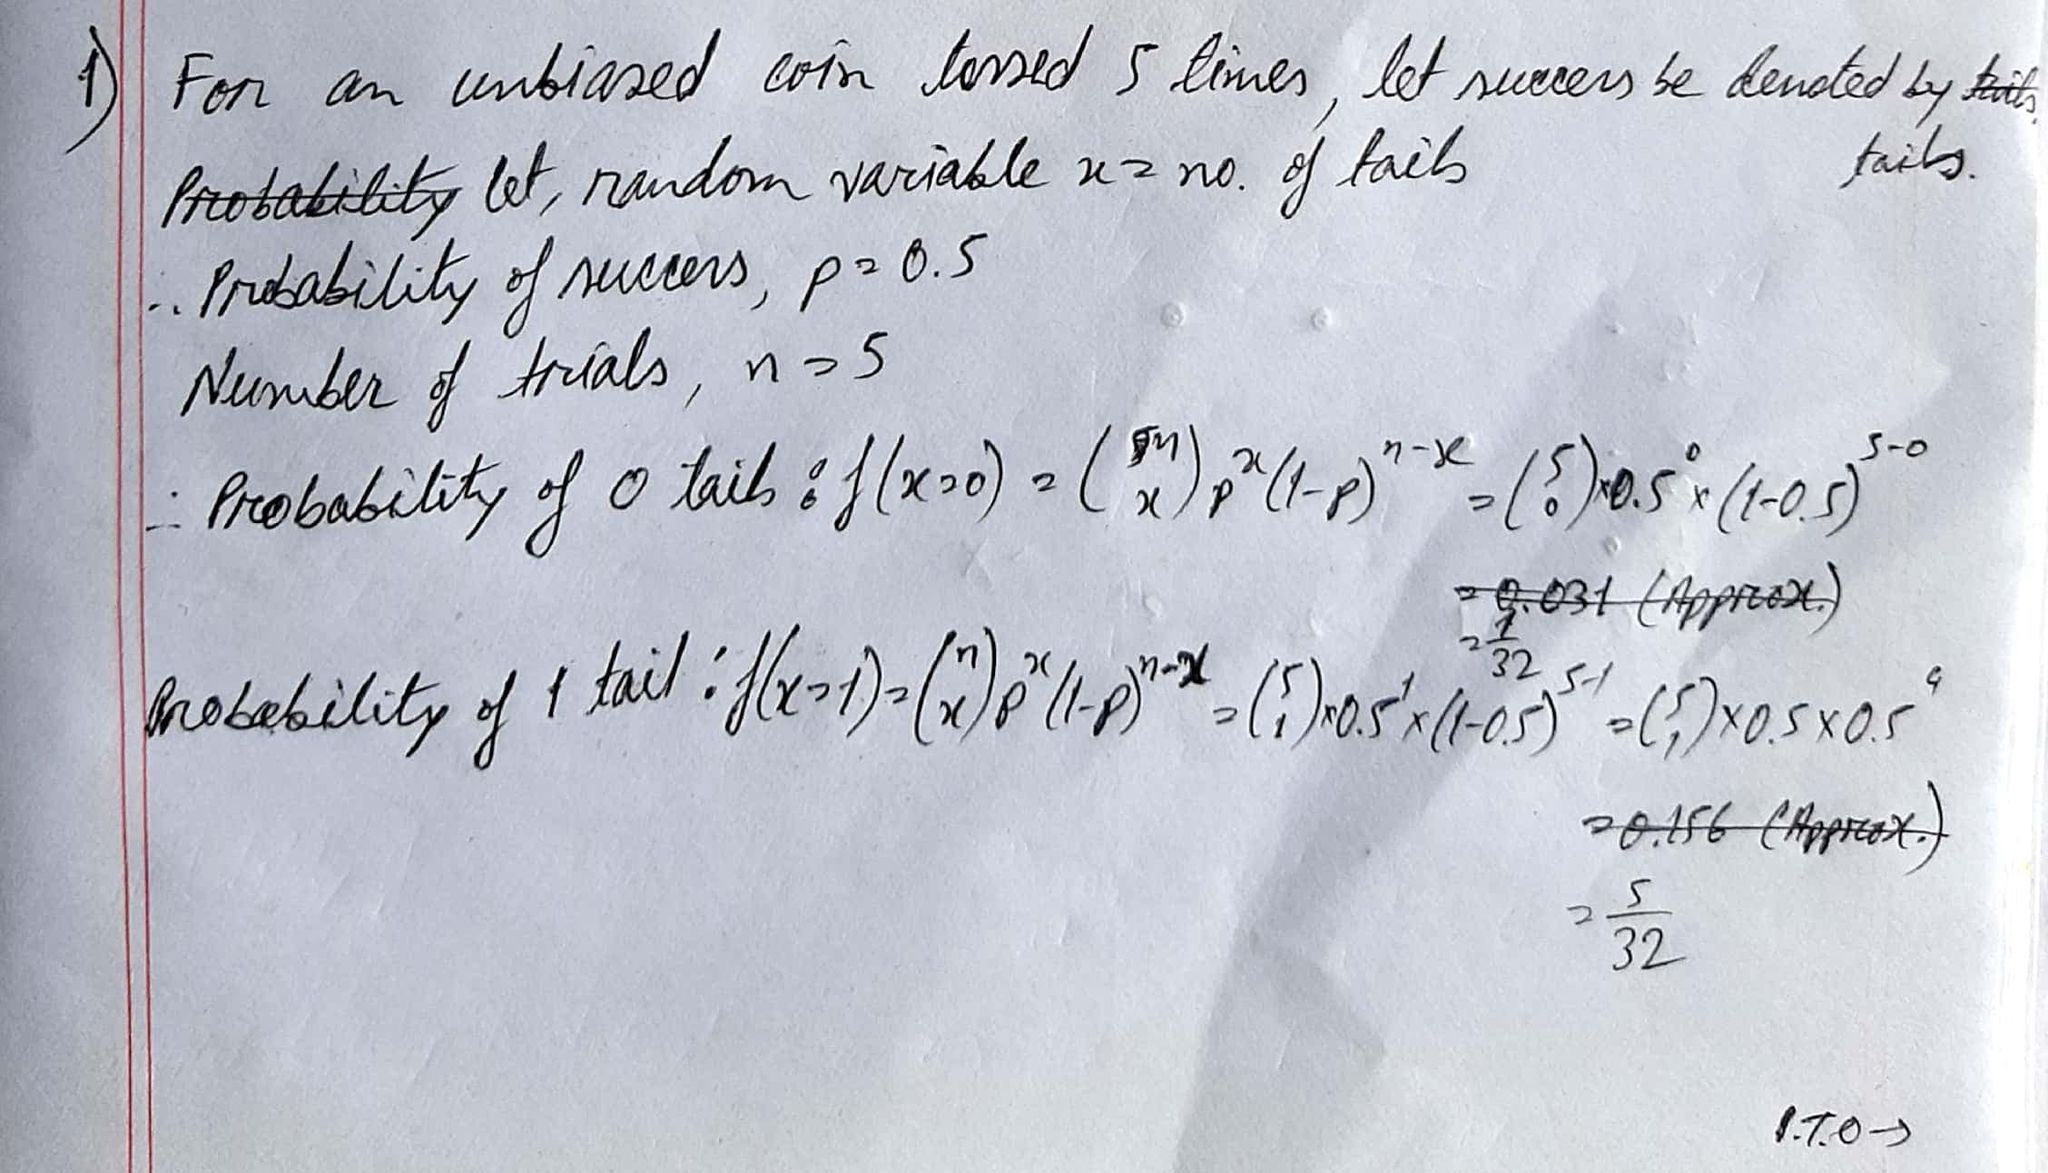 1) For an unbiased coin tossed 5 times, let success be denoted by tails.
tails.
Probability let, random variable x = no. of tails
∴ Probability of success, p = 0.5
Number of trials, n = 5
∴ Probability of 0 tails : f(x=0) = (n x) p^x (1-p)^(n-x) = (5 0) × 0.5^0 × (1-0.5)^(5-0)
= 0.031 (Approx.)
= 1/32
Probability of 1 tail : f(x=1) = (n x) p^x (1-p)^(n-x) = (5 1) × 0.5^1 × (1-0.5)^(5-1) = (5 1) × 0.5 × 0.5^4
= 0.156 (Approx.)
= 5/32
P.T.O →